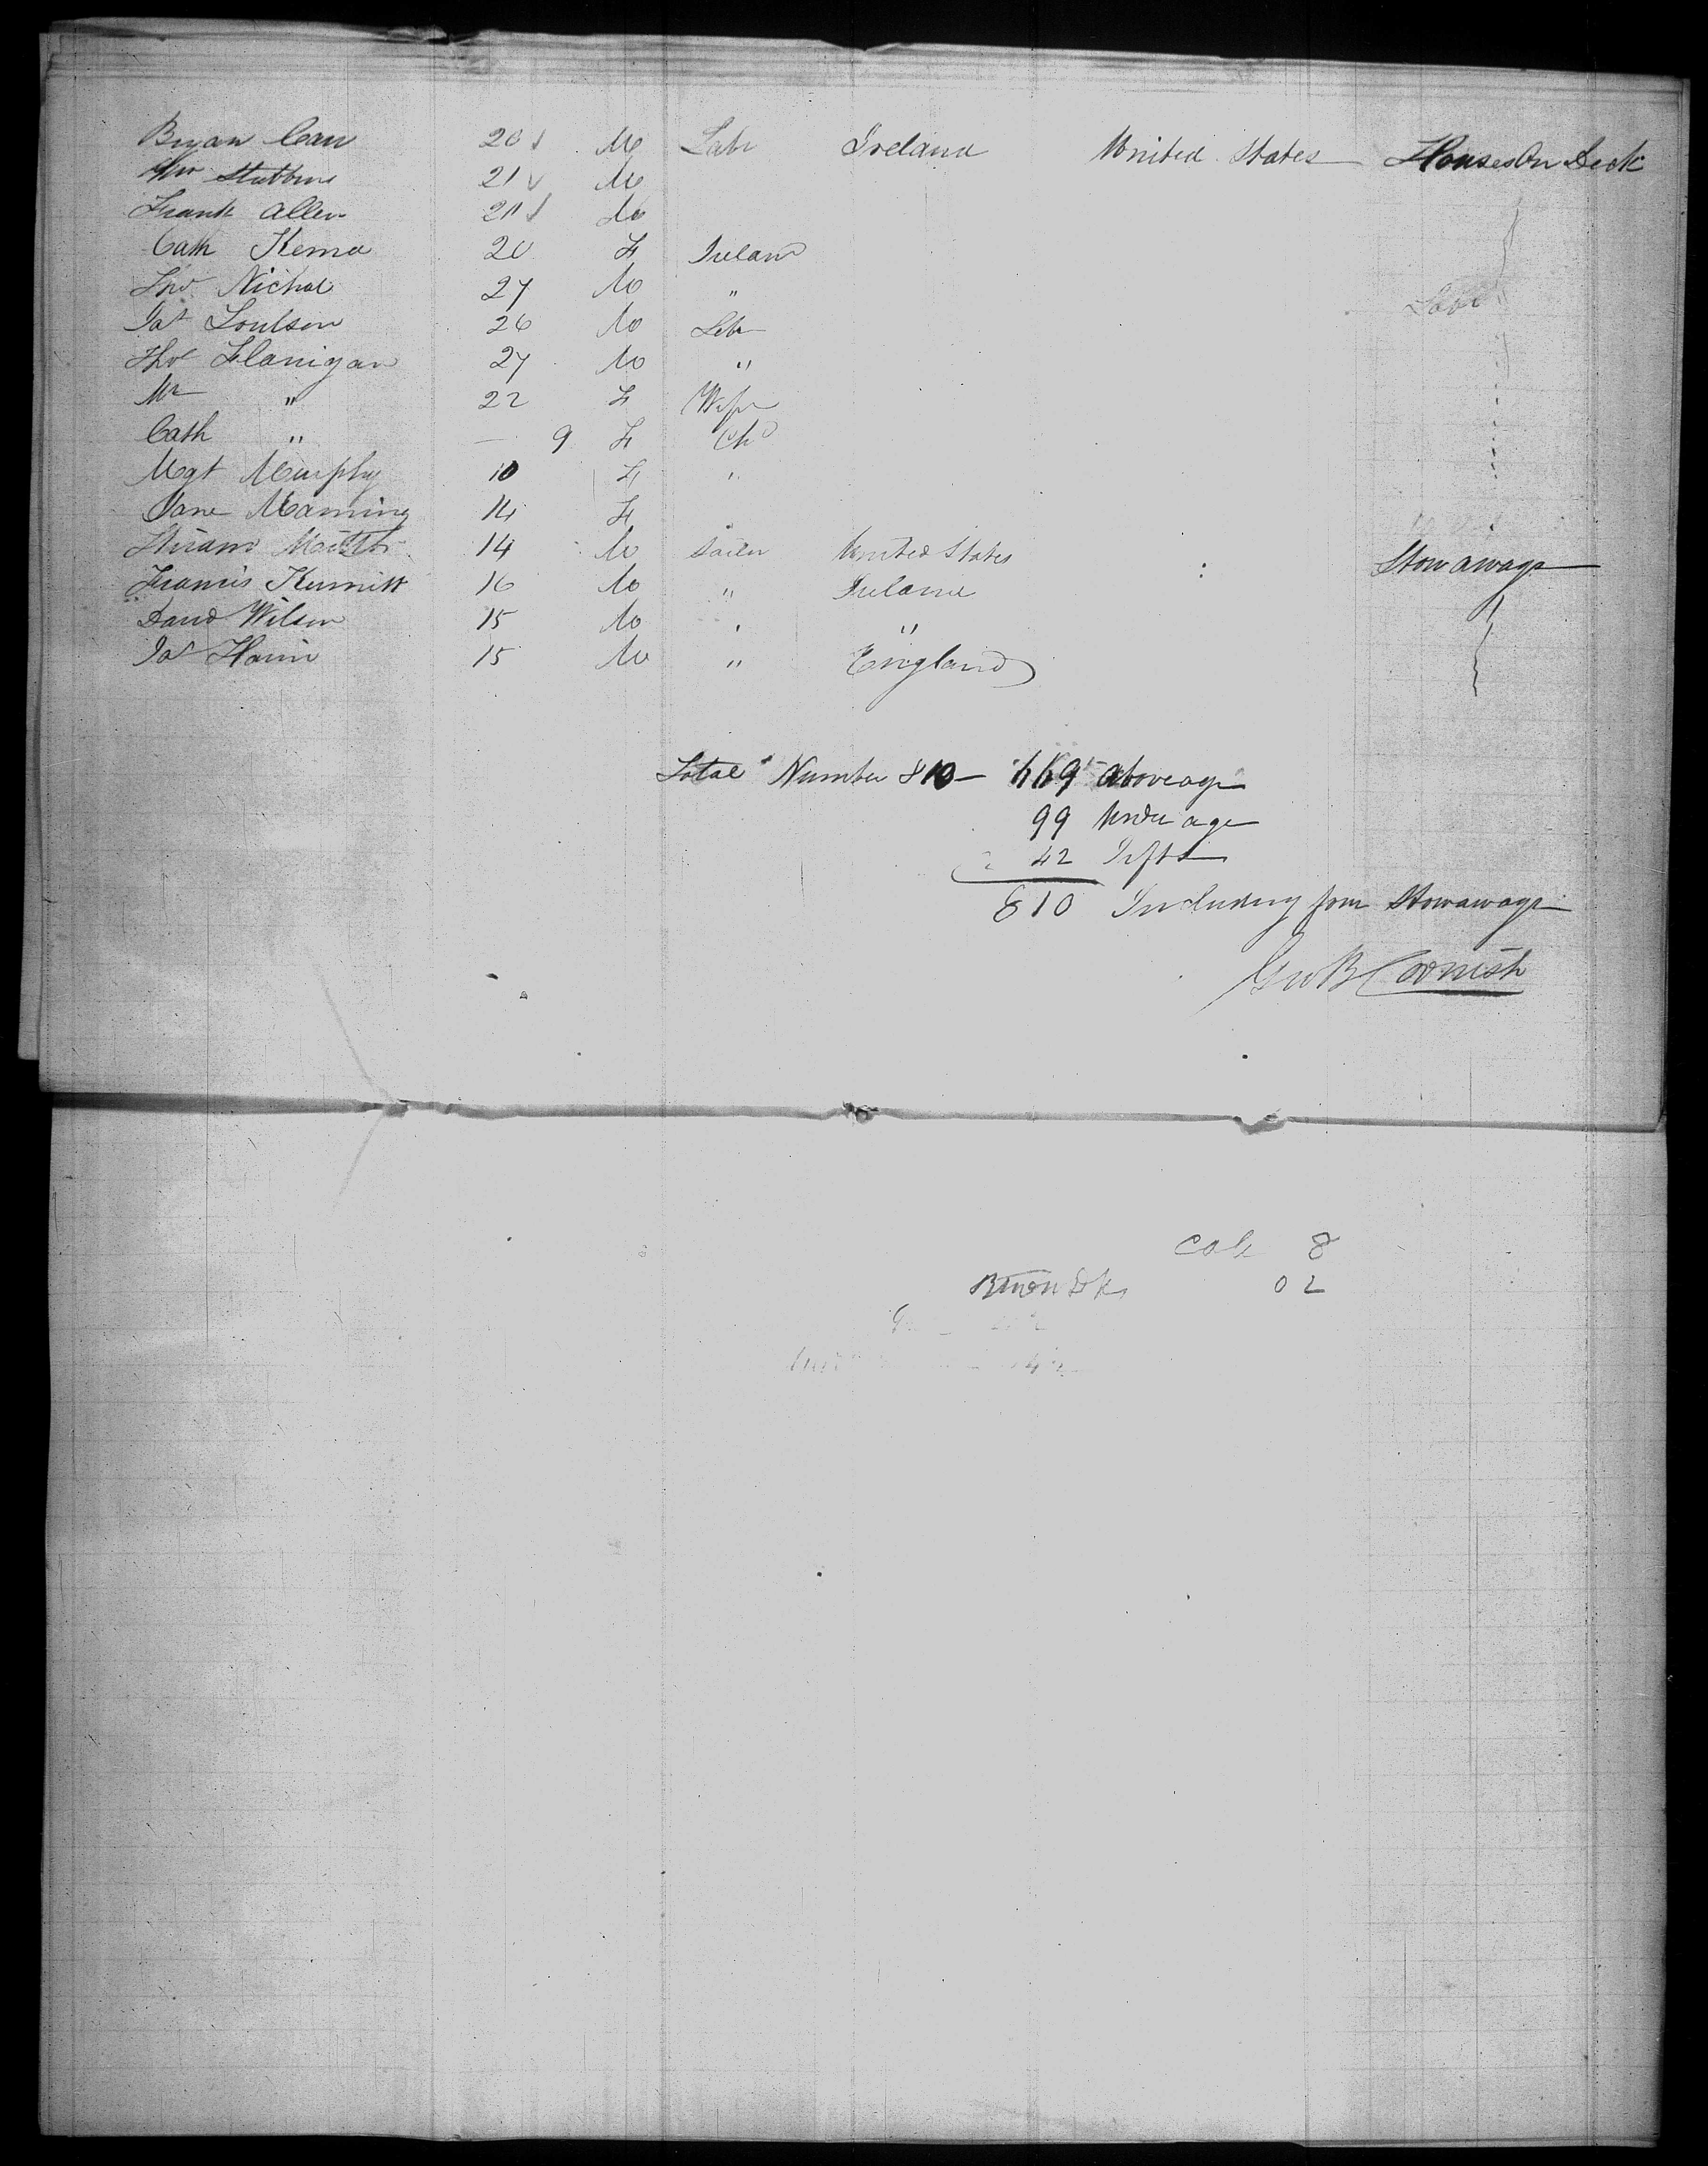 Bryan Carr 20 M Labr Ireland United States Houses On Deck
Wm Stubbins 21 M
Frank Allen 21 M
Cath Kerna 20 F Ireland
Thos Nichol 27 M "
Jas Toulson 26 M Labr
Thos Flanigan 27 M "
Mr " 22 F Wife
Cath " — 9 F Chd
Mgt Murphy 10 F "
Jane Manning 14 F
Hiram 14 M Sailor United States Stowaways
Francis Kermitt 16 M " Ireland "
David Wilson 15 M " "
Jas 15 M " England
Total Number 810 — 669 Above age
99 Under age
42 Infts
810 Including four Stowaways
Geo B Cornish
Cab 8
02